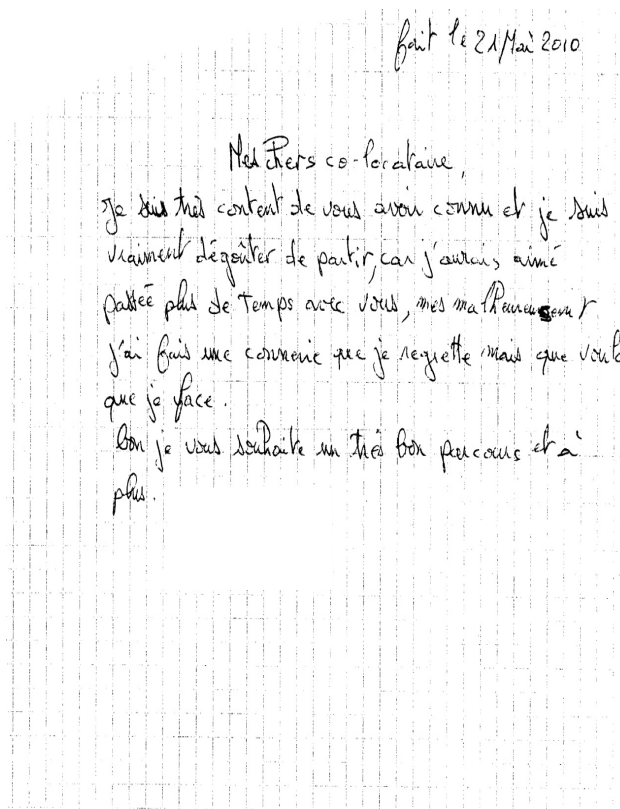 fait le 21 Mai 2010
Mes chers co-locataire,
Je suis très content de vous avoir connu et je suis
vraiment dégoûter de partir, car j'aurais aimé
passée plus de temps avec vous, mes malheureusement
j'ai fais une connerie que je regrette mais que voule
que je face.
bon je vous souhaite un très bon parcours et à
plus.